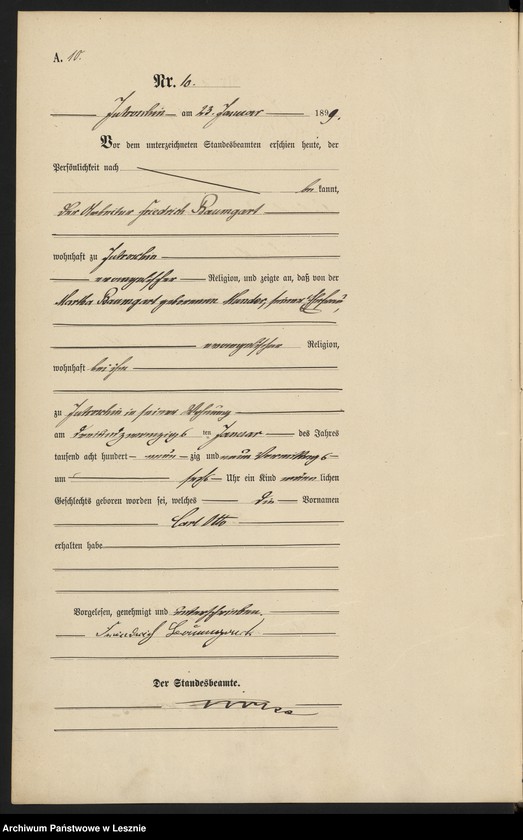 A. 10.
Nr. 10.
Jutroschin am 23. Januar 1899.
Vor dem unterzeichneten Standesbeamten erschien heute, der
Persönlichkeit nach
be kannt,
der Arbeiter Friedrich Baumgart
wohnhaft zu Jutroschin
evangelischer Religion, und zeigte an, daß von der
Martha Baumgart geborenen seiner Ehefrau,
evangelischer Religion,
wohnhaft bei ihm
zu Jutroschin in seiner Wohnung
am dreiundzwanzigsten Januar des Jahres
tausend acht hundert neun zig und neun Vormittags
um sechs Uhr ein Kind männlichen
Geschlechts geboren worden sei, welches die Vornamen
Carl Otto
erhalten habe
Vorgelesen, genehmigt und unterschrieben.
Friedrich Baumgart
Der Standesbeamte.
Archiwum Państwowe w Lesznie